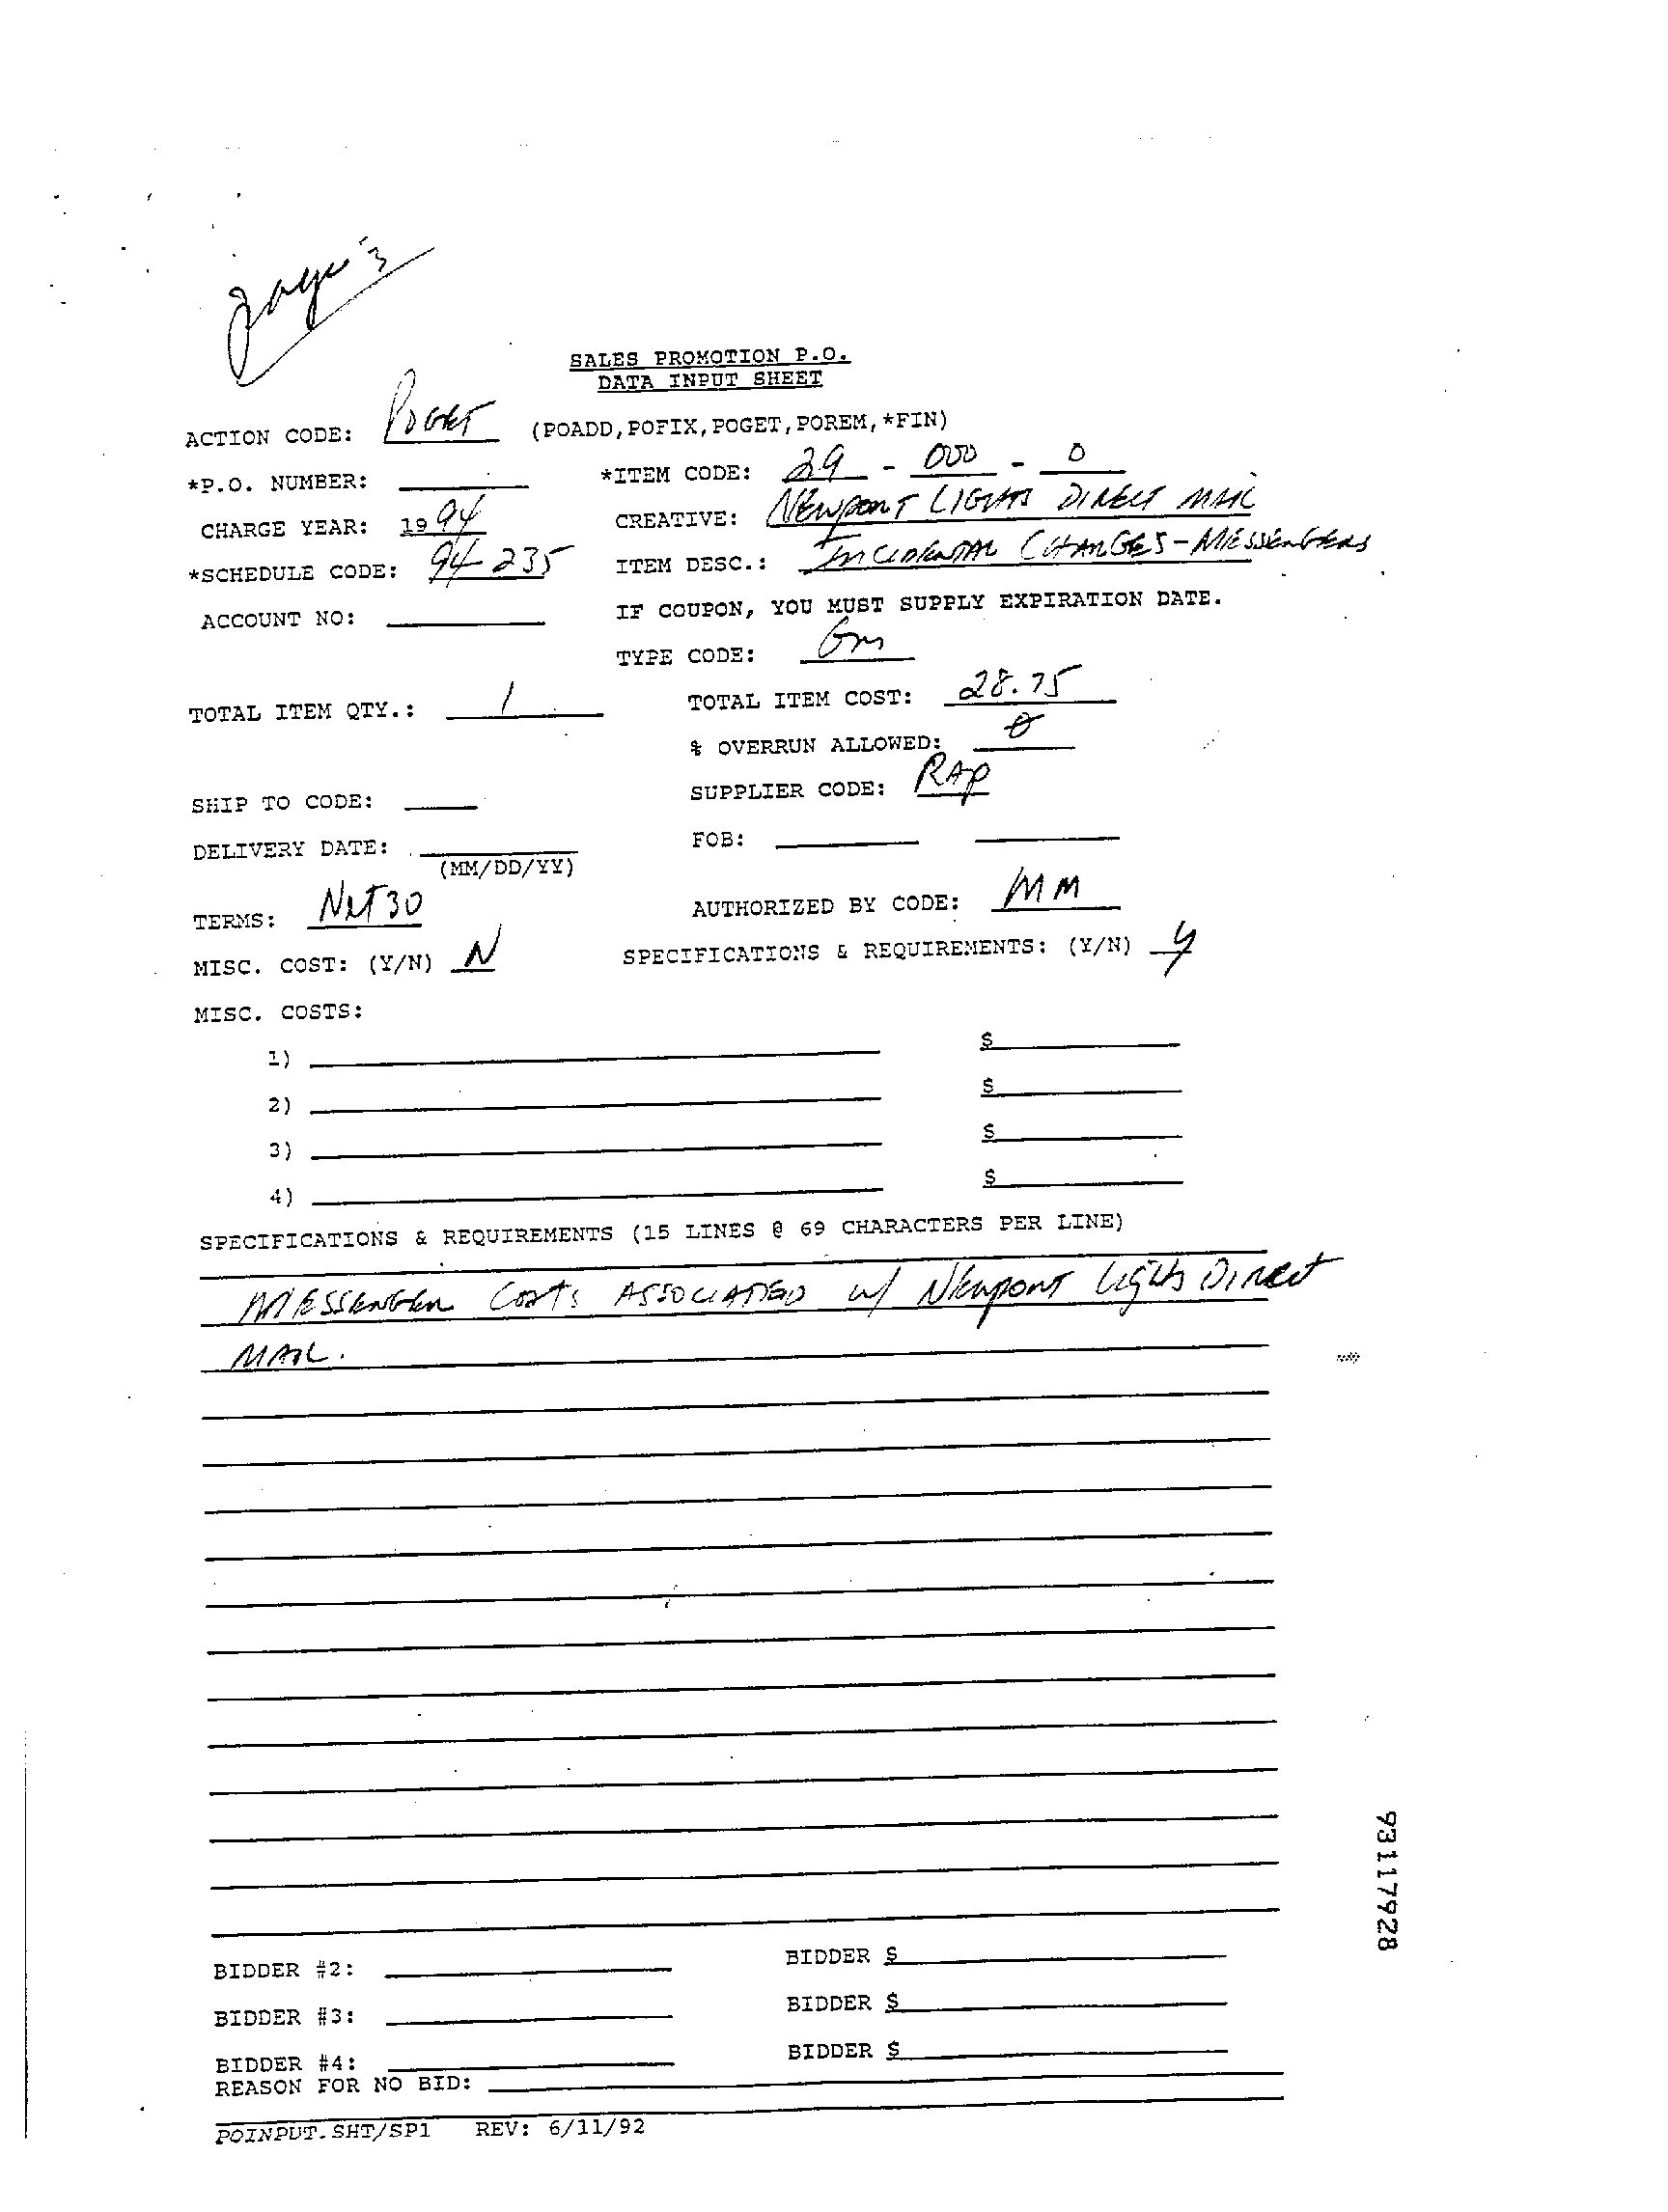 SALES PROMOTION P.O.
DATA INPUT SHEET
ACTION CODE: POGET (POADD,POFIX,POGET,POREM,*FIN)
*P.O. NUMBER: *ITEM CODE: 29 - 000 - 0
CHARGE YEAR: 1994 CREATIVE: NEWPORT LIGHTS DIRECT MAIL
*SCHEDULE CODE: 94-235 ITEM DESC.: INCIDENTAL CHARGES-MESSENGERS
ACCOUNT NO: IF COUPON, YOU MUST SUPPLY EXPIRATION DATE.
TYPE CODE: Gm
TOTAL ITEM QTY.: 1 TOTAL ITEM COST: 28.75
% OVERRUN ALLOWED: 0
SHIP TO CODE: SUPPLIER CODE: RAP
DELIVERY DATE: FOB:
(MM/DD/YY)
TERMS: Net 30 AUTHORIZED BY CODE: MM
MISC. COST: (Y/N) N SPECIFICATIONS & REQUIREMENTS: (Y/N) y
MISC. COSTS:
1) $
2) $
3) $
4) $
SPECIFICATIONS & REQUIREMENTS (15 LINES @ 69 CHARACTERS PER LINE)
MESSENGER COSTS ASSOCIATED w/ Newport Lights Direct
MAIL.
93117928
BIDDER #2: BIDDER $
BIDDER #3: BIDDER $
BIDDER #4: BIDDER $
REASON FOR NO BID:
POINPUT.SHT/SP1 REV: 6/11/92